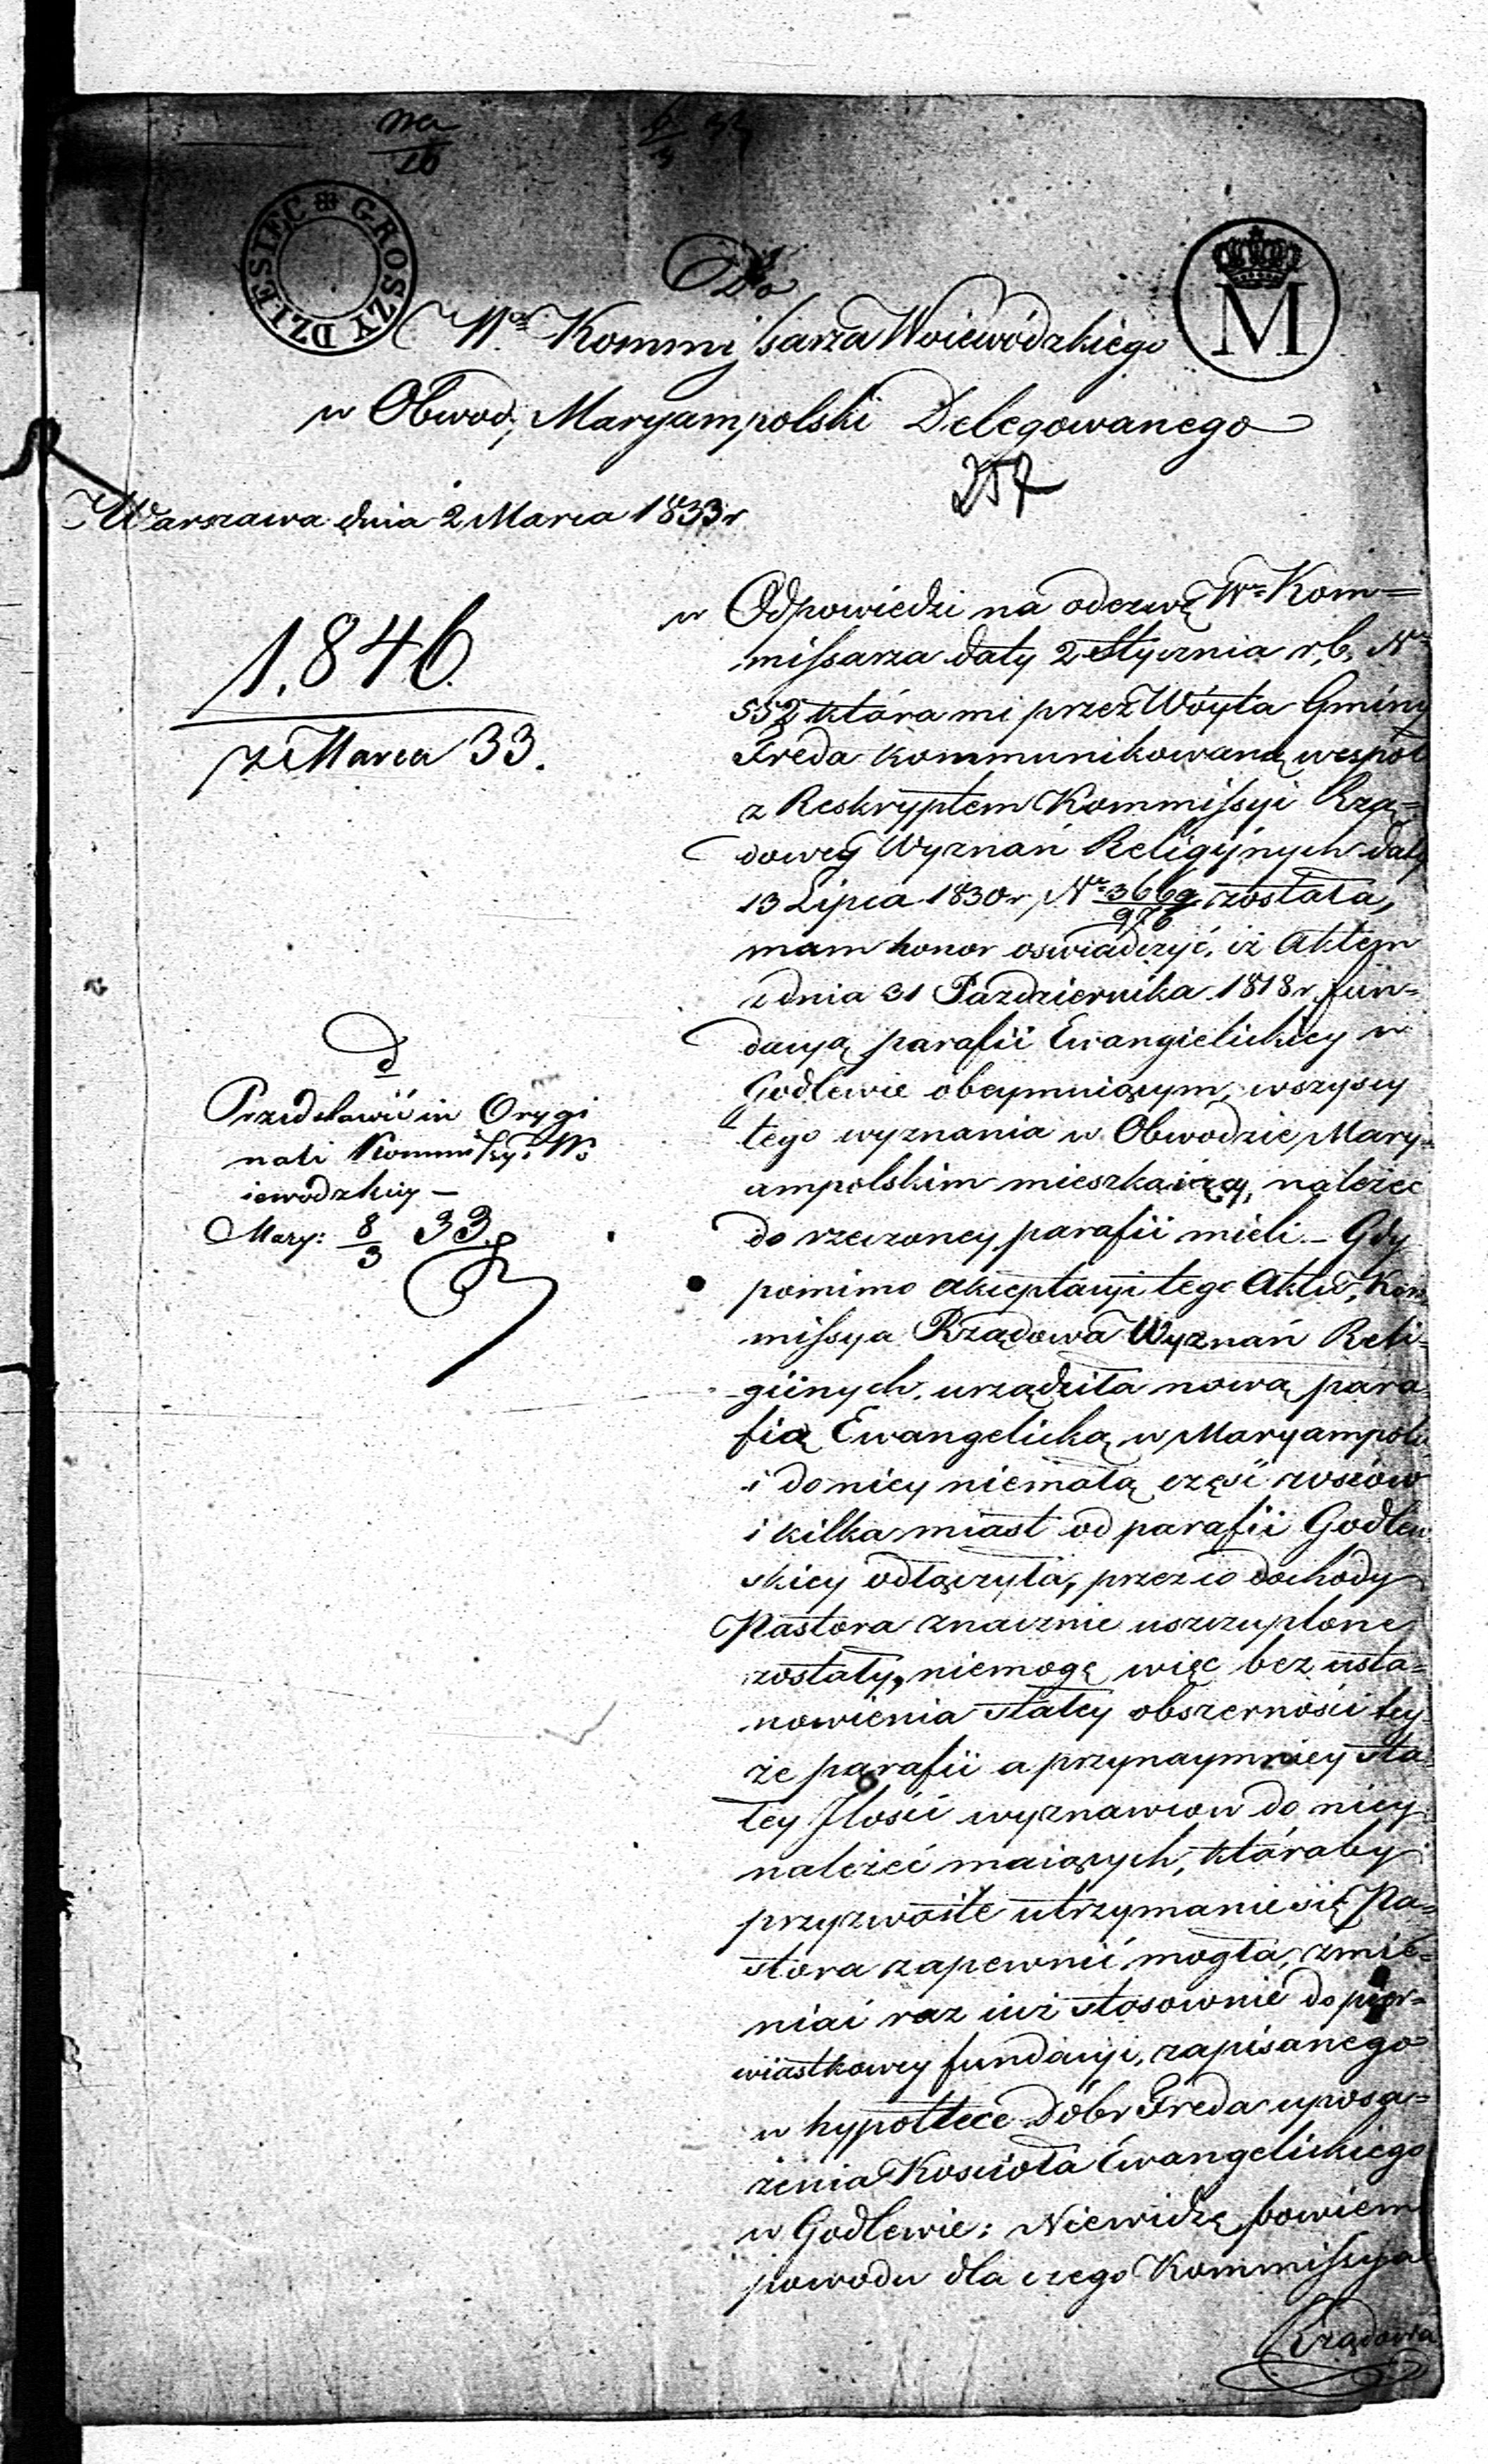 GROSZY DZIESIEC
M
Do
Wo Kommissarza Woiewódzkiego
w Obwod: Maryampolski Delegowanego
257
Warszawa dnia 2 Marca 1833 r
1.846.
z Marca 33.
w Odpowiedzi na odezwę Wo Kom=
missarza daty 2 Stycznia r, b, No
552 która mi przez Wóyta Gminy
Freda kommunikowaną wespół
z Reskryptem Kommissyi Rzą=
dowey Wyznań Religijnych daty
13 Lipca 1830 r, No 3669/976 została,
mam honor oswiadczyć, iż Aktem
z dnia 31 Pazdziernika 1818 r, fun=
dacyą parafii Ewangielickiey w
Godlewie obeymuiącym, wszyscy
tego wyznania w Obwodzie Mary=
ampolskim mieszkaiący, należec
do rzeczoney parafii mieli. – Gdy
pomimo akceptacyi tego Aktu, Kom
missya Rządowa Wyznań Reli=
giinych, urządziła nową para
fią Ewangelicką w Maryampolu
i do niey niemałą częsć wsiów
i kilka miast od parafii Godlew
skiey odłączyła, przez co dochody
Pastora znacznie uszczuplone
zostały, niemogę więc bez usta=
nowienia stałey obszerności tey
że parafii a przynaymniey sta
łey Jlości wyznawcow do niey
należeć maiących, któraby
przyzwoite utrzymanie się Pa=
stora zapewnić mogła, zmie=
niać raz iuż stosownie do pier=
wiastkowey fundacyi, zapisanego
w hypotece Dóbr Freda uposa=
żenia Koscioła Ewangelickiego
w Godlewie: Niewidzę bowiem
powodu dla czego Kommissya
Rządowa
d
Przedstawić in Orygi
nali Kommissyi Wo
iewodzkiey –
Mary: 8/3 33.